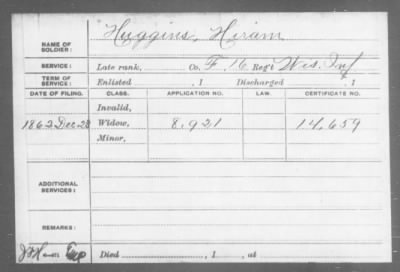 Huggins, Hiram
NAME OF
SOLDIER:
SERVICE: Late rank, Co. F, 16 Reg't Wis. Inf
TERM OF
SERVICE: Enlisted , 1 Discharged , 1
DATE OF FILING. CLASS. APPLICATION NO. LAW. CERTIFICATE NO.
Invalid,
1862 Dec 28 Widow, 8,921 14,659
Minor,
ADDITIONAL
SERVICES:
REMARKS:
Died , 1 , at